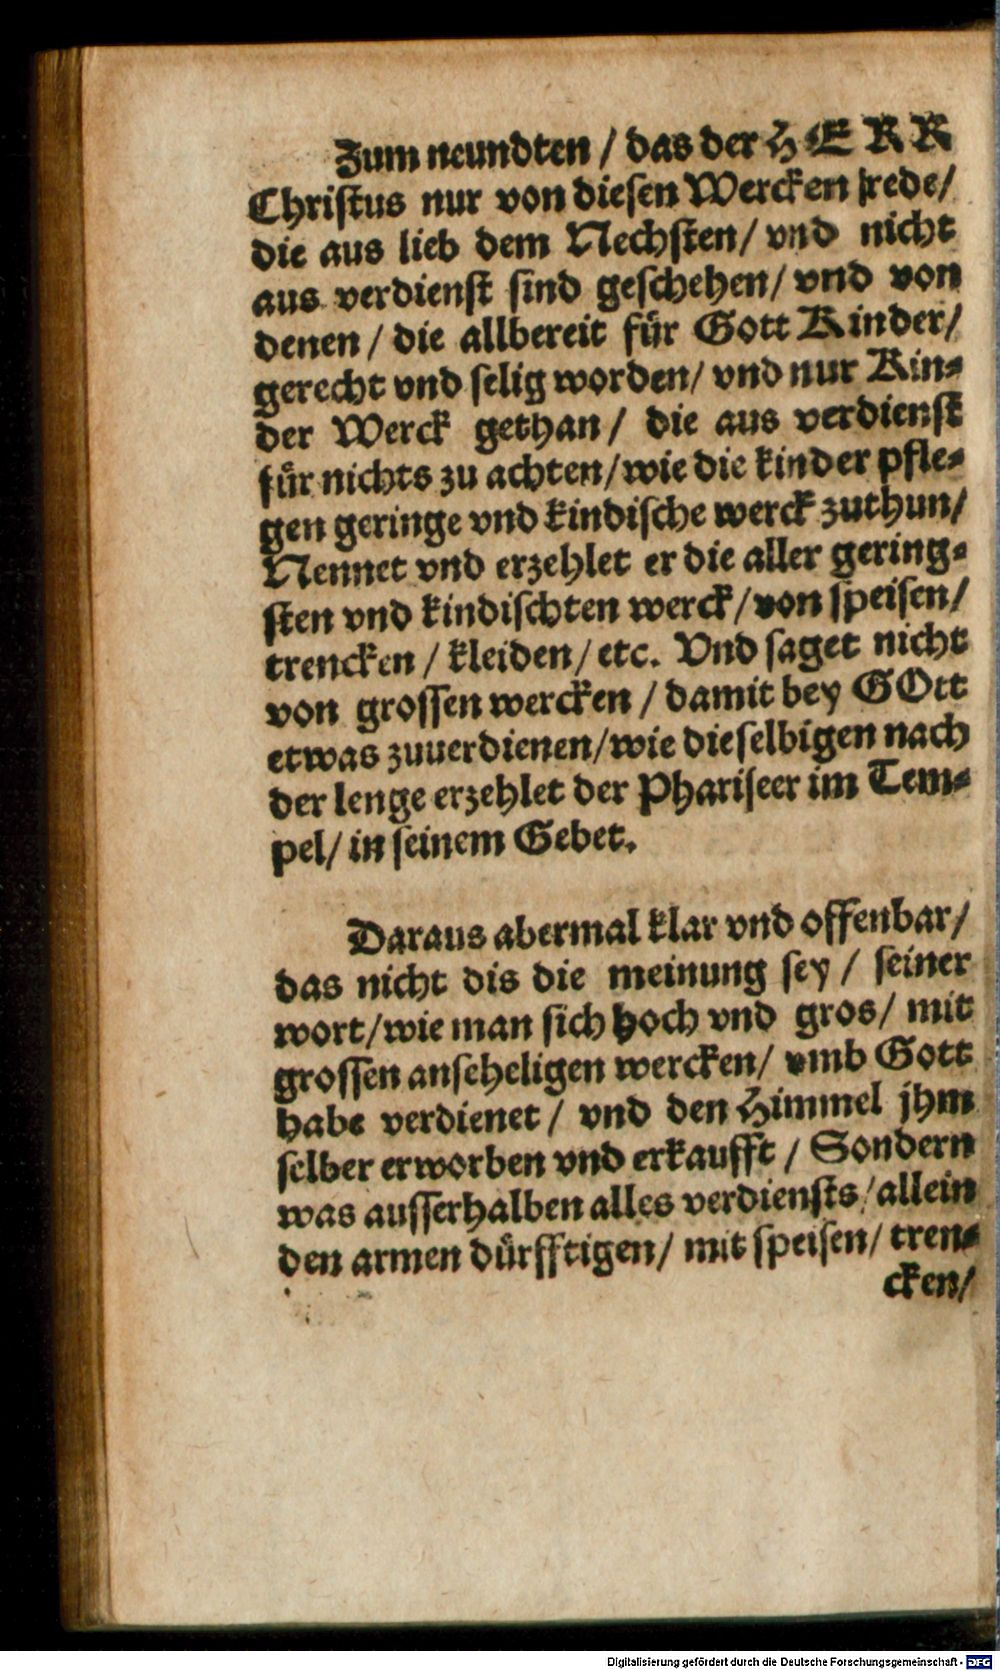 Zum neundten / das der HERR
Christus nur von diesen Wercken rede/
die aus lieb dem Nechsten/ vnd nicht
aus verdienst sind geschehen/ vnd von
denen / die allbereit für Gott Kinder/
gerecht vnd selig worden/ vnd nur Kin-
der Werck gethan/ die aus verdienst
für nichts zu achten/wie die kinder pfle-
gen geringe vnd kindische werck zuthun/
Nennet vnd erzehlet er die aller gering-
sten vnd kindischten werck/von speisen/
trencken / kleiden/ etc. Vnd saget nicht
von grossen wercken / damit bey GOtt
etwas zuuerdienen/wie dieselbigen nach
der lenge erzehlet der Phariseer im Tem-
pel/ in seinem Gebet.
Daraus abermal klar vnd offenbar/
das nicht dis die meinung sey / seiner
wort/wie man sich hoch vnd gros/ mit
grossen anseheligen wercken/ vmb Gott
habe verdienet / vnd den Himmel jhm
selber erworben vnd erkaufft / Sondern
was ausserhalben alles verdiensts/allein
den armen dürfftigen/ mit speisen/ tren-
cken/
Digitalisierung gefördert durch die Deutsche Forschungsgemeinschaft - DFG